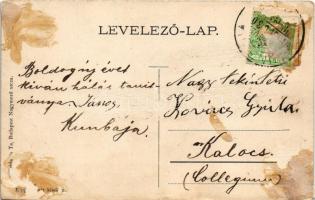 LEVELEZŐ-LAP.
Boldog új éves
kiván hálás tanit-
ványa János
Kunbaja.
Nagy tekintetü
Kovács Gyula
Kalocs.
(Collegium)